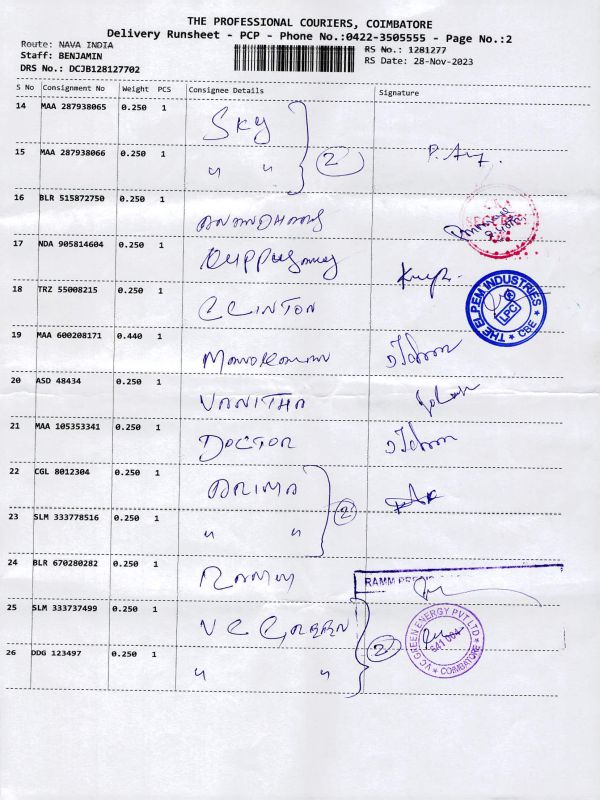 THE PROFESSIONAL COURIERS, COIMBATORE
Delivery Runsheet - PCP - Phone No.:0422-3505555 - Page No.:2
Route: NAVA INDIA
Staff: BENJAMIN
DRS No.: DCJB128127702
RS No.: 1281277
RS Date: 28-Nov-2023
S No Consignment No Weight PCS Consignee Details Signature
14 MAA 287938065 0.250 1 SKY
15 MAA 287938066 0.250 1 " " 2
16 BLR 515872750 0.250 1
17 NDA 905814604 0.250 1
18 TRZ 55008215 0.250 1 CLINTON
THE EL.P.EM INDUSTRIES
LPC
CBE
19 MAA 600208171 0.440 1
20 ASD 48434 0.250 1 VANITHA
21 MAA 105353341 0.250 1 DOCTOR
22 CGL 8012304 0.250 1
23 SLM 333778516 0.250 1 " " 2
24 BLR 670280282 0.250 1
RAMM
25 SLM 333737499 0.250 1 V C GREEN
26 DDG 123497 0.250 1 " " 2
V.C GREEN ENERGY PVT LTD
641 004
COIMBATORE